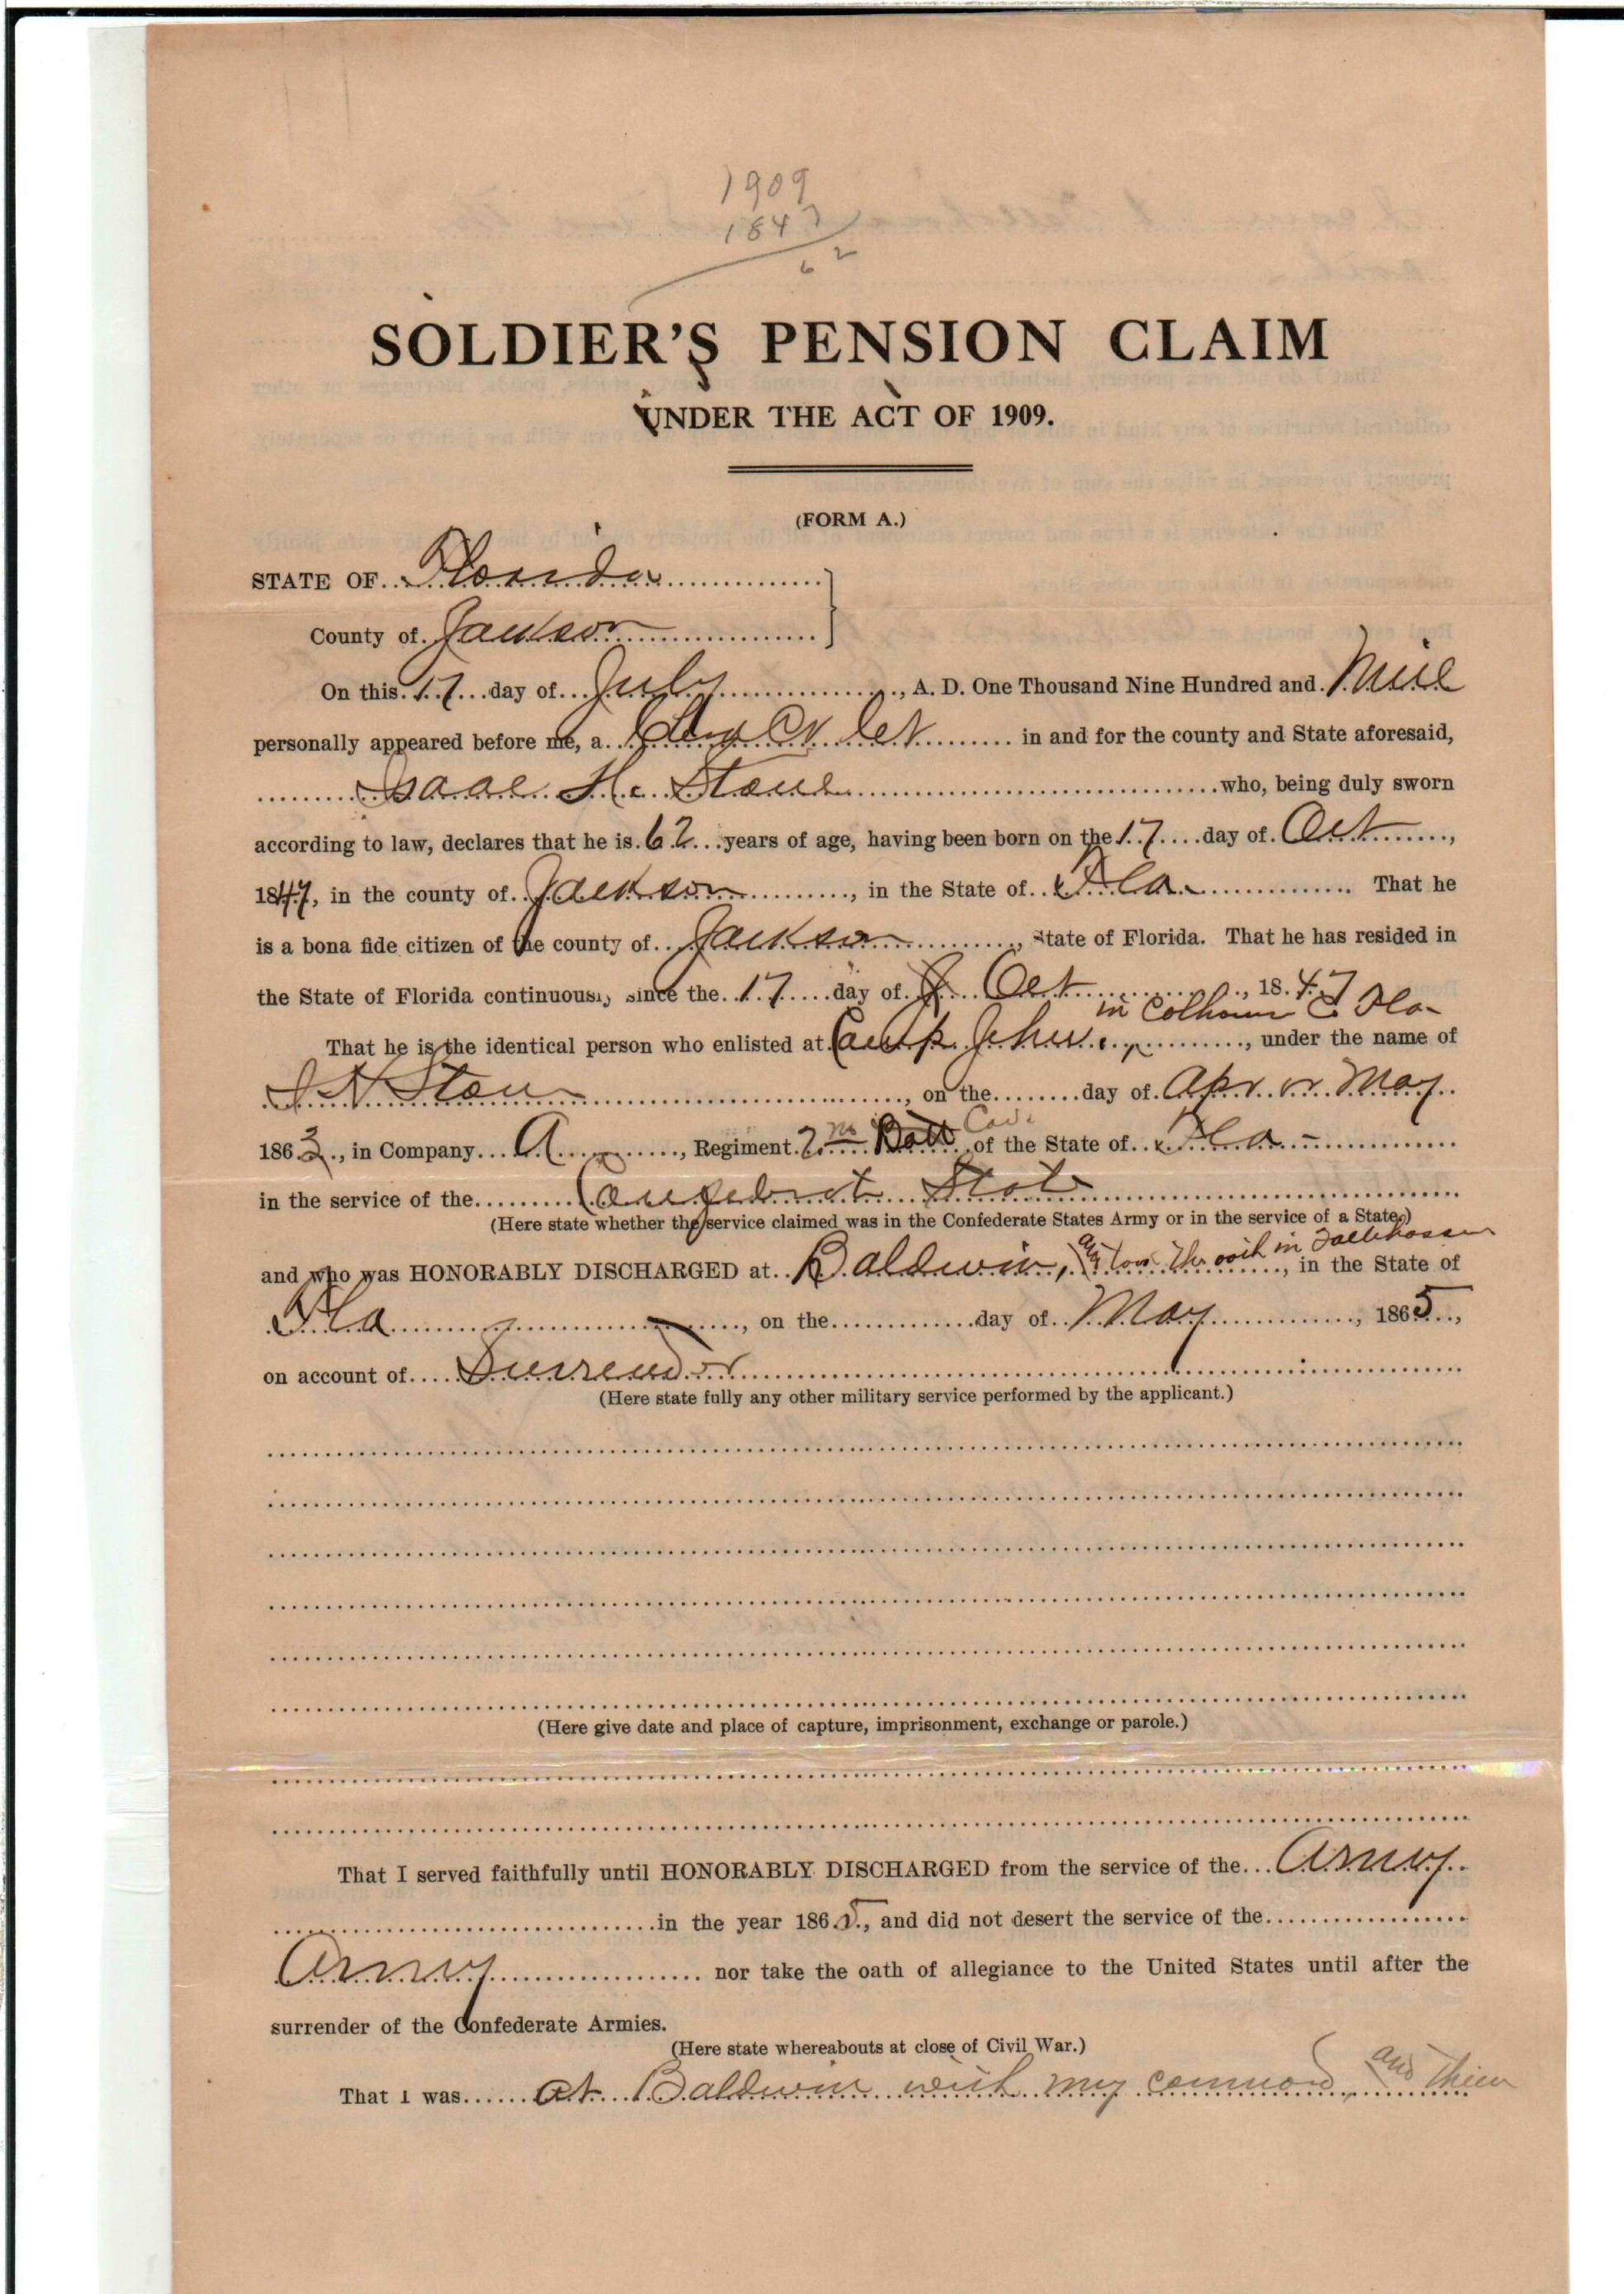 1909
1847
62
SOLDIER'S PENSION CLAIM
UNDER THE ACT OF 1909.
(FORM A.)
STATE OF Florida
County of Jackson
On this 17 day of July, A. D. One Thousand Nine Hundred and Nine
personally appeared before me, a Clerk Cir Crt in and for the county and State aforesaid,
Isaac H. Stone who, being duly sworn
according to law, declares that he is 62 years of age, having been born on the 17 day of Oct,
1847, in the county of Jackson, in the State of Fla. That he
is a bona fide citizen of the county of Jackson, State of Florida. That he has resided in
the State of Florida continuously since the 17 day of Oct, 1847
in Calhoun Co Fla
That he is the identical person who enlisted at Camp John, under the name of
I H Stone, on the day of Apr or May
1863, in Company A, Regiment 2nd Batt Cav. of the State of Fla
in the service of the Confedrit State
(Here state whether the service claimed was in the Confederate States Army or in the service of a State.)
and who was HONORABLY DISCHARGED at Baldwin, the oath in Tallehassee, in the State of
Fla, on the day of May, 1865,
on account of Surrender
(Here state fully any other military service performed by the applicant.)
(Here give date and place of capture, imprisonment, exchange or parole.)
That I served faithfully until HONORABLY DISCHARGED from the service of the Army
in the year 1865, and did not desert the service of the
Army nor take the oath of allegiance to the United States until after the
surrender of the Confederate Armies.
(Here state whereabouts at close of Civil War.)
That I was at Baldwin with my command, and then